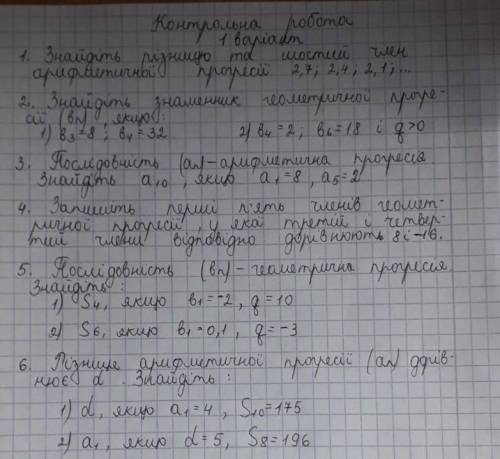 Контрольна робота
1 варіант
1. Знайдіть різницю та шостий член
арифметичної прогресії 2,7; 2,4; 2,1;...
2. Знайдіть знаменник геометричної прогре-
сії (bn), якщо:
1) b3=8; b4=32 2) b4=2; b6=18 і q>0
3. Послідовність (an)-арифметична прогресія
Знайдіть a10, якщо a1=8, a5=2
4. Запишіть перші п'ять членів геомет-
ричної прогресії, у якої третій і четвер-
тий члени відповідно дорівнюють 8 і -16.
5. Послідовність (bn) - геометрична прогресія
Знайдіть:
1) S4, якщо b1=-2, q=10
2) S6, якщо b1=0,1, q=-3
6. Різниця арифметичної прогресії (an) дорів-
нює d. Знайдіть:
1) d, якщо a1=4, S10=175
2) a1, якщо d=5, S8=196